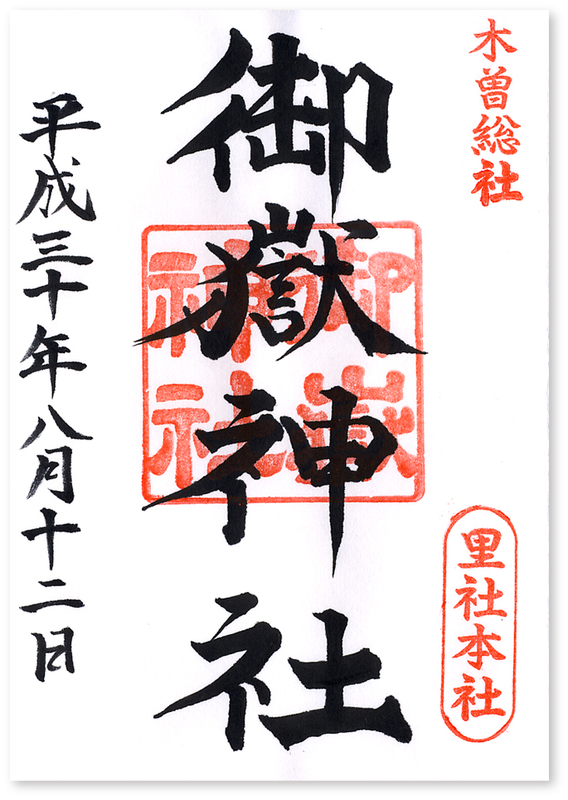 木曽総社
里社本社
御嶽神社
御嶽神社
平成三十年八月十二日